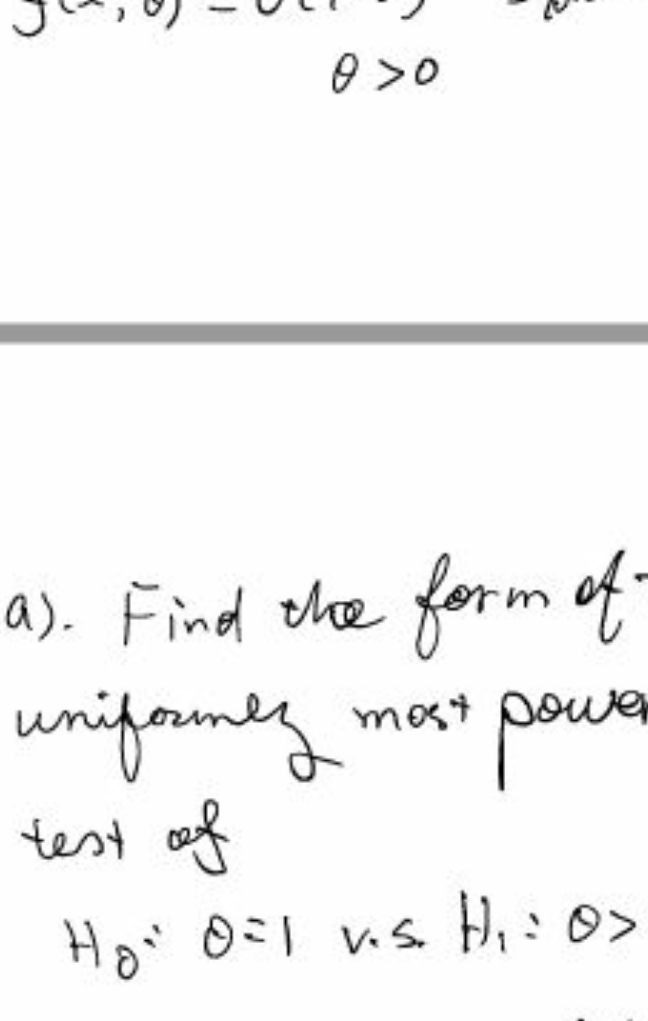 θ > 0
a). Find the form of
uniformly most power
test of
H₀: θ = 1 v.s. H₁: θ >